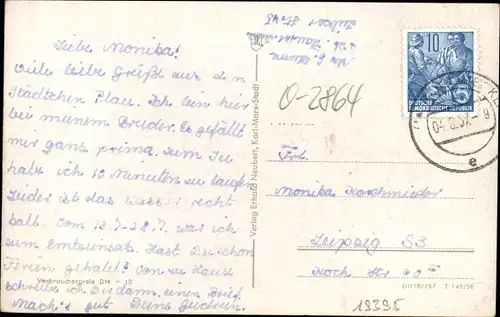 Liebe Monika!
Viele liebe Grüße aus dem
Städtchen Plau. Ich bin hier
bei meinem Bruder. Es gefällt
mir ganz prima. Zum See
habe ich 10 Minuten zu laufen.
Leider ist das Wasser recht
kalt. Vom 13.7.-28.7. war ich
zum Ernteeinsatz. Hast Du schon
Ferien gehabt? Von zu Hause
schreibe ich Dir dann einen Brief.
Mach's gut Deine Gudrun.
Verbraucherpreis DM -.10
Verlag Erhard Neubert, Karl-Marx-Stadt
0-2864
10
DEUTSCHE
DEMOKRATISCHE REPUBLIK
e
Frl.
Monika
Leipzig S3
Koch Str. 60
III/18/197 T 146/56
19395